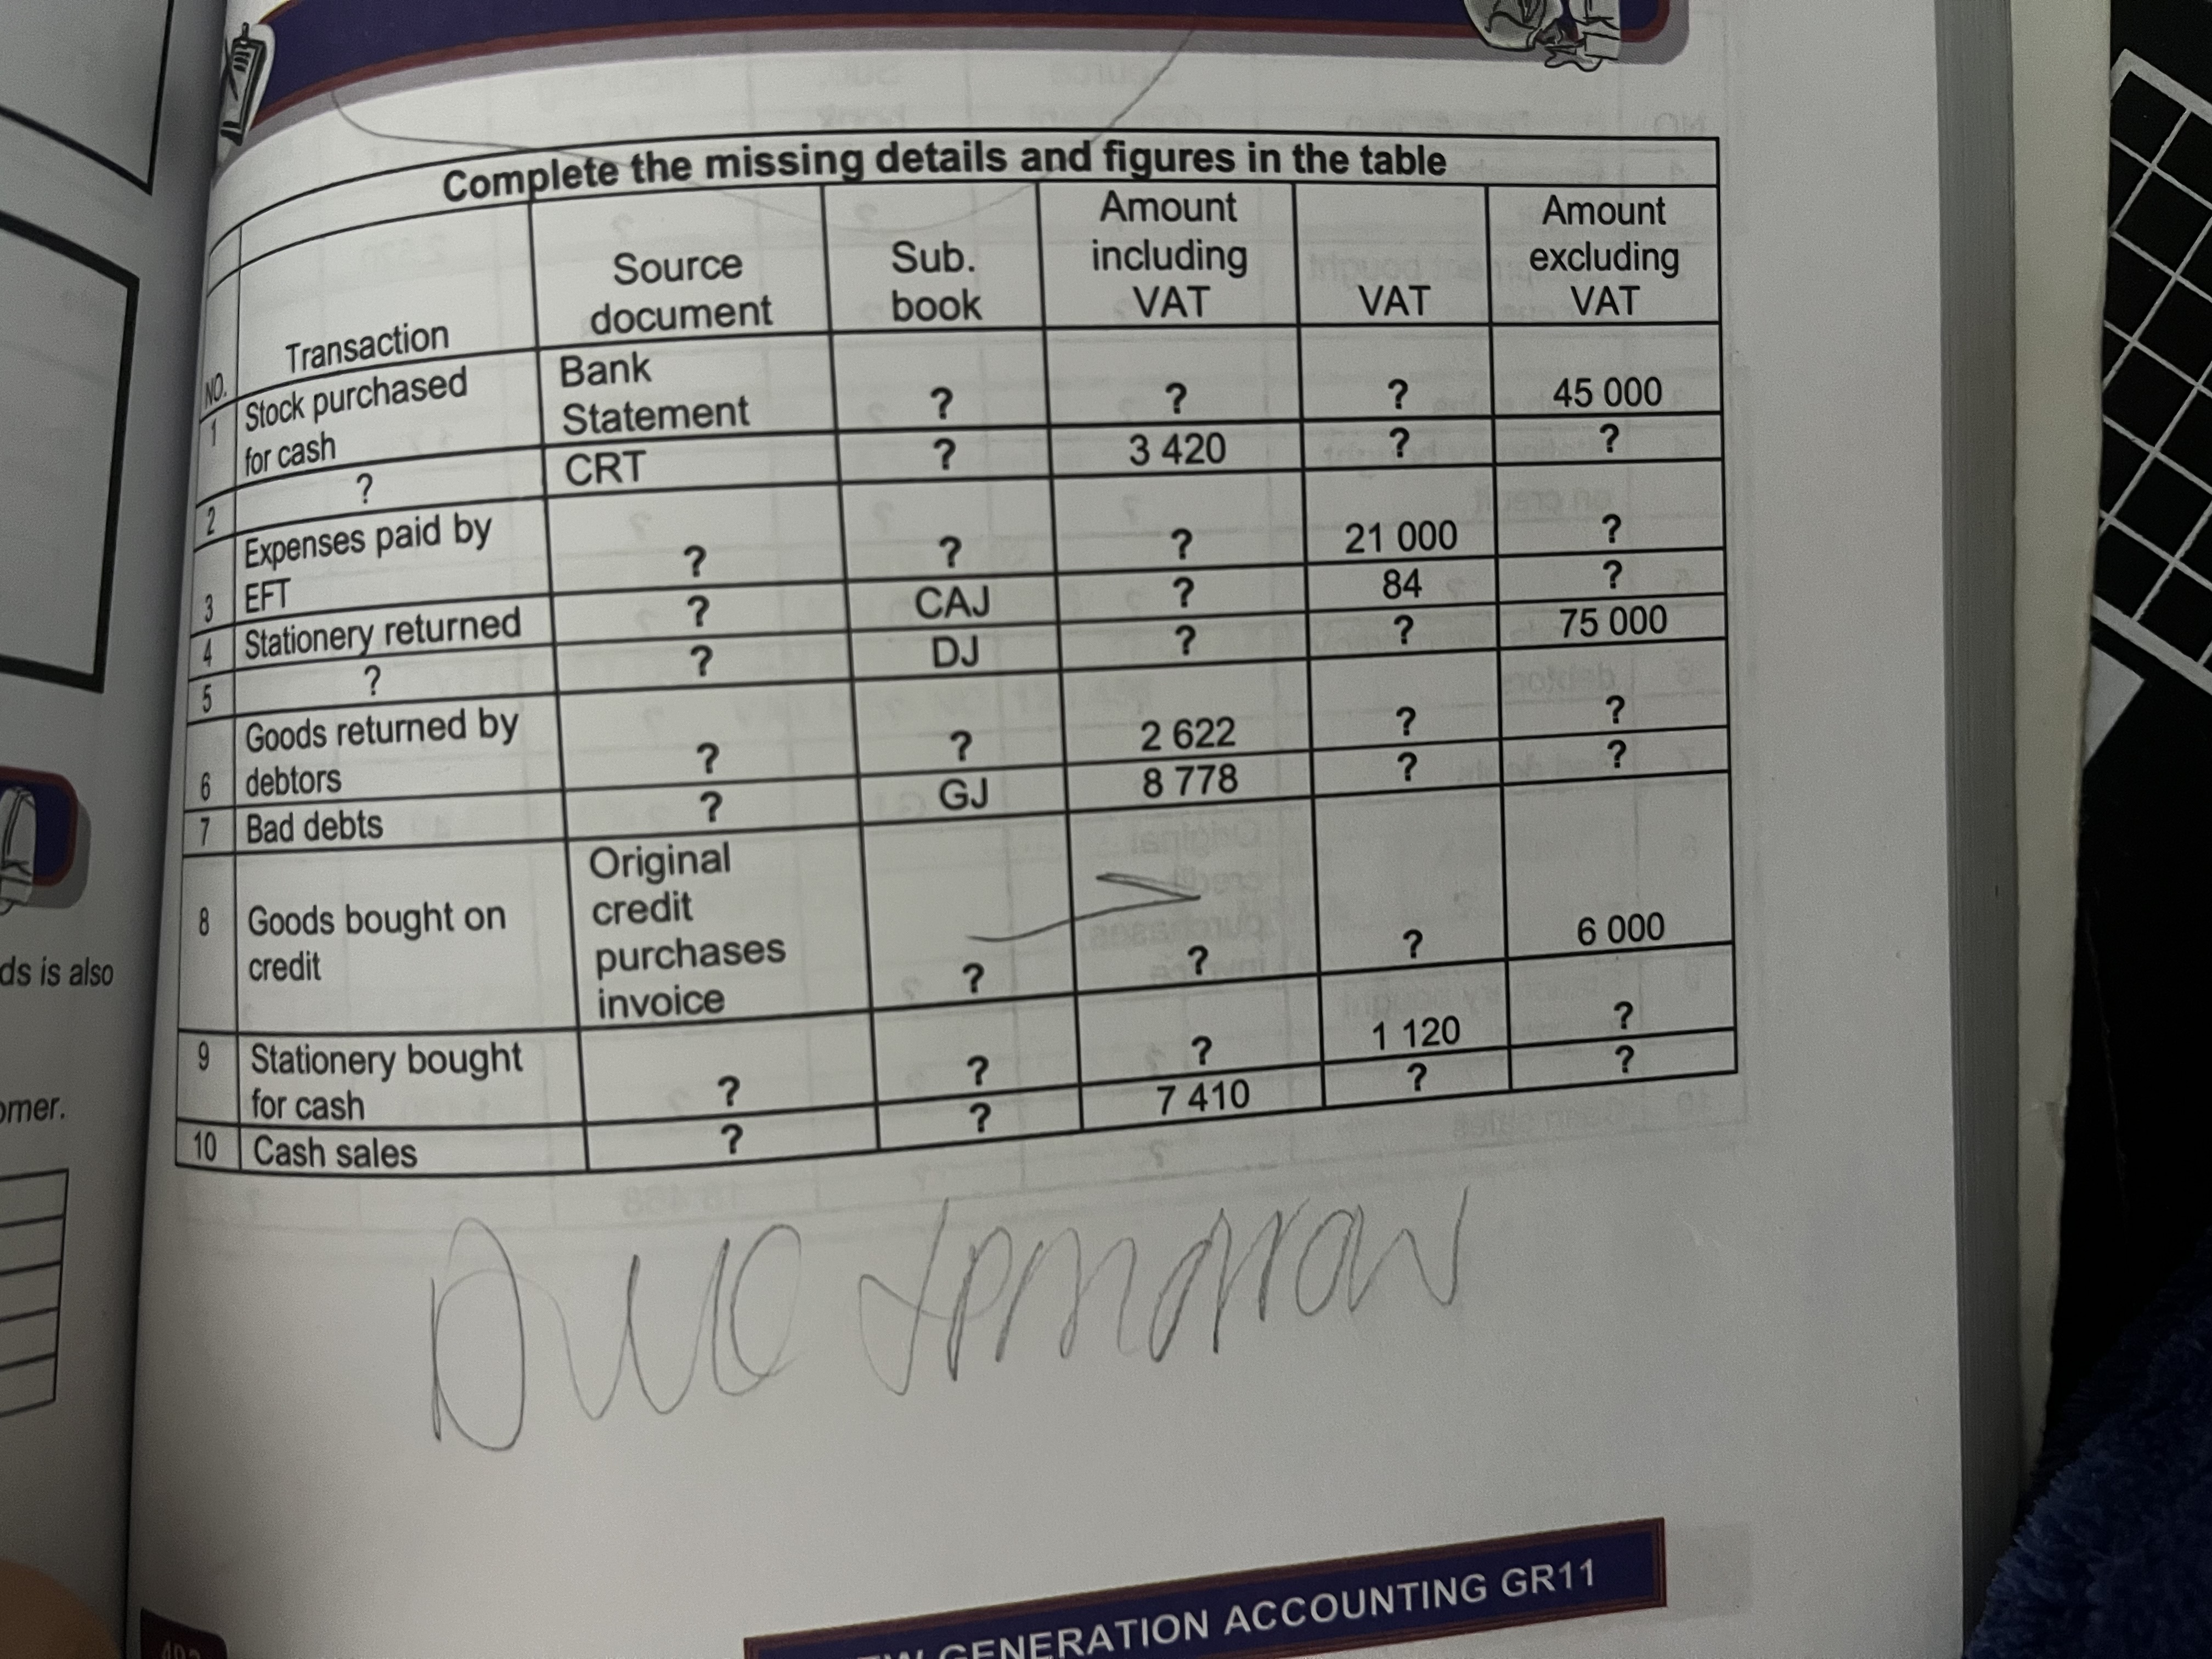 ds is also
omer.
Complete the missing details and figures in the table
NO. Transaction Source document Sub. book Amount including VAT VAT Amount excluding VAT
1 Stock purchased for cash Bank Statement ? ? ? 45 000
2 ? CRT ? 3 420 ? ?
3 Expenses paid by EFT ? ? ? 21 000 ?
4 Stationery returned ? CAJ ? 84 ?
5 ? ? DJ ? ? 75 000
6 Goods returned by debtors ? ? 2 622 ? ?
7 Bad debts ? GJ 8 778 ? ?
8 Goods bought on credit Original credit purchases invoice ? ? ? 6 000
9 Stationery bought for cash ? ? ? 1 120 ?
10 Cash sales ? ? 7 410 ? ?
GENERATION ACCOUNTING GR11